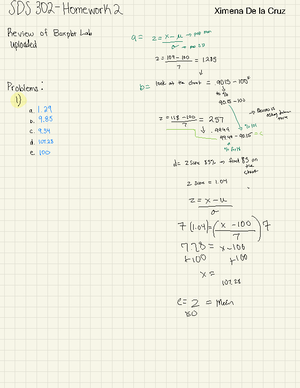 SDS 302 - Homework 2
Ximena De la Cruz
Review of Bongbr Lab
uploaded
Problems:
1)
a. 1.29
b. 9.85
c. 9.54
d. 107.28
e. 100
a = z = x - u → pop mean
σ → pop SD
z = 109 - 100 = 1.285
7
b = look at the chart = .9015 - 100
9015 - 100
z = 118 - 100 = 2.57
7
.9949
.9949 - .9015 = c
d = Z Score 85% → find 85 on
the chart
Z score = 1.04
z = x - u
σ
7 (1.04) = (x - 100) 7
7
7.28 = x - 100
+100 +100
x =
107.28
e = Z = mean
50